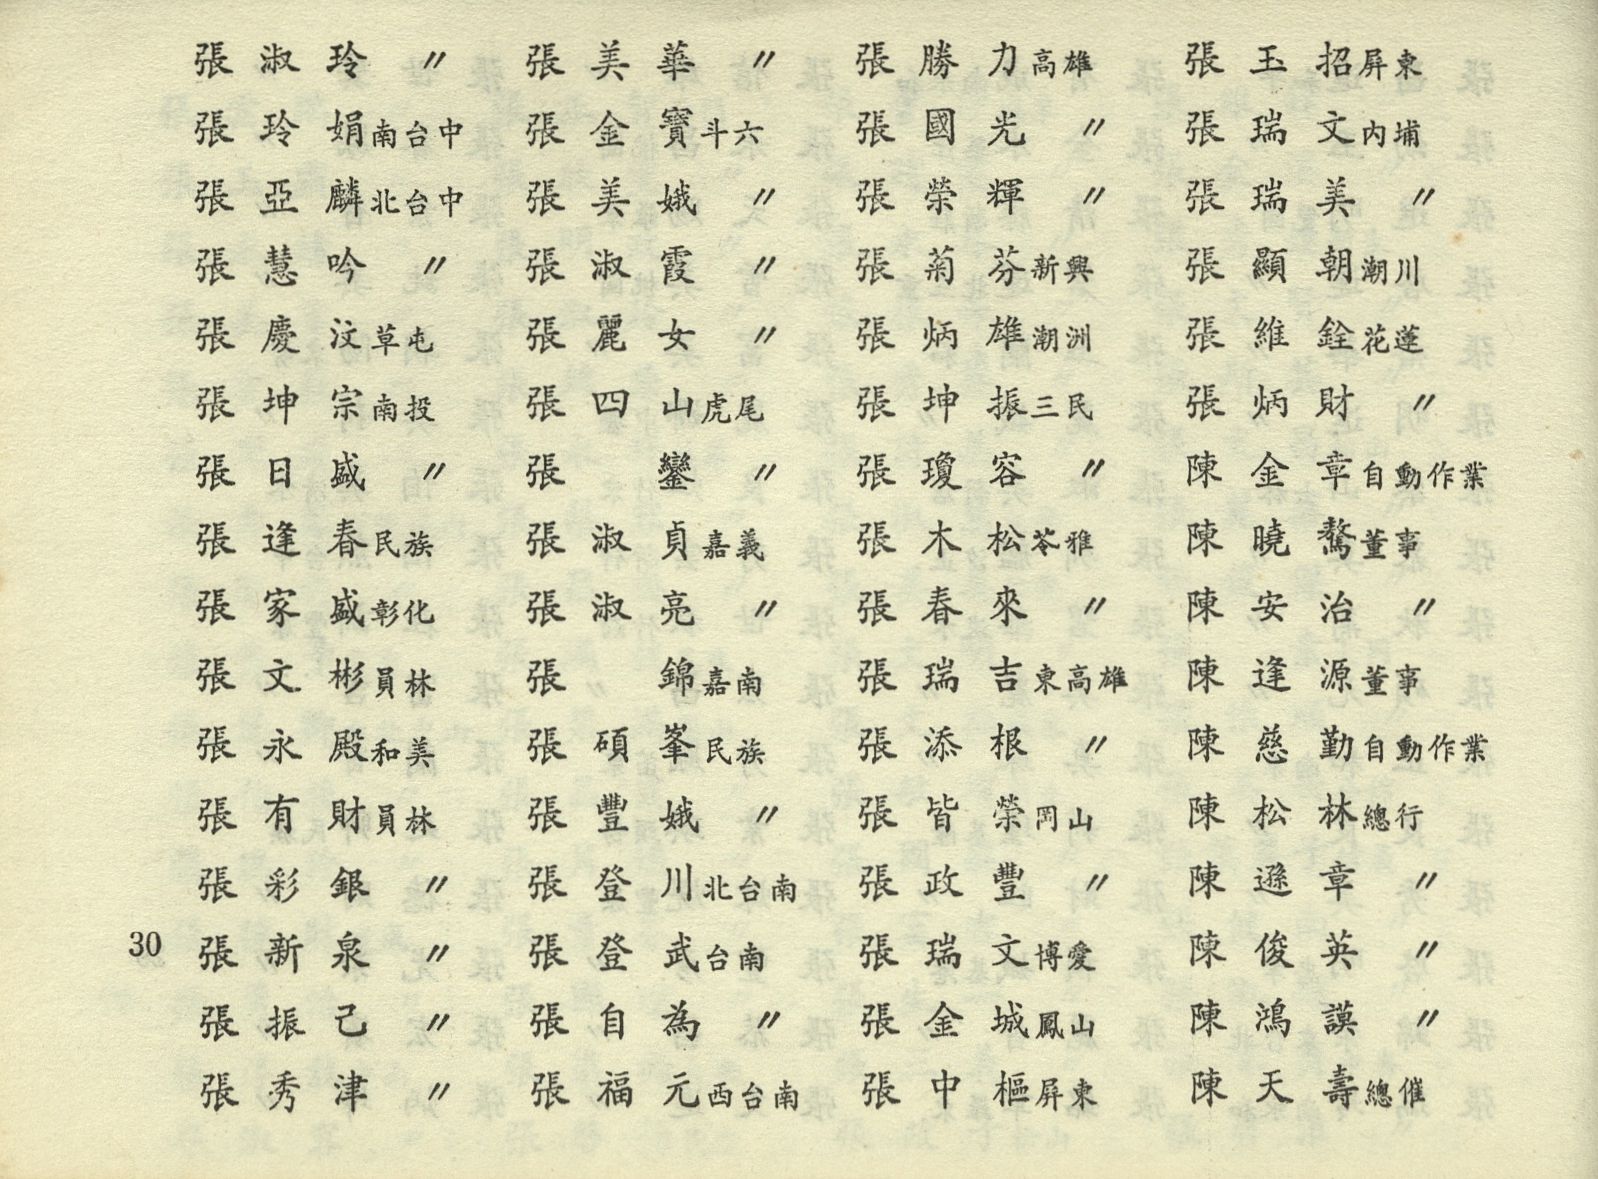 張淑玲 〃
張玲娟 南台中
張亞麟 北台中
張慧吟 〃
張慶汶 草屯
張坤宗 南投
張日盛 〃
張逢春 民族
張家盛 彰化
張文彬 員林
張永殿 和美
張有財 員林
張彩銀 〃
張新泉 〃
張振己 〃
張秀津 〃
張美華 〃
張金寶 斗六
張美娥 〃
張淑霞 〃
張麗女 〃
張四山 虎尾
張 鑾 〃
張淑貞 嘉義
張淑亮 〃
張 錦 嘉南
張碩峯 民族
張豐娥 〃
張登川 北台南
張登武 台南
張自為 〃
張福元 西台南
張勝力 高雄
張國光 〃
張榮輝 〃
張菊芬 新興
張炳雄 潮洲
張坤振 三民
張瓊容 〃
張木松 苓雅
張春來 〃
張瑞吉 東高雄
張添根 〃
張皆榮 岡山
張政豐 〃
張瑞文 博愛
張金城 鳳山
張中樞 屏東
張玉招 屏東
張瑞文 內埔
張瑞美 〃
張顯朝 潮川
張維銓 花蓮
張炳財 〃
陳金章 自動作業
陳曉鶖 董事
陳安治 〃
陳逢源 董事
陳慈勤 自動作業
陳松林 總行
陳遜章 〃
陳俊英 〃
陳鴻謨 〃
陳天壽 總催
30